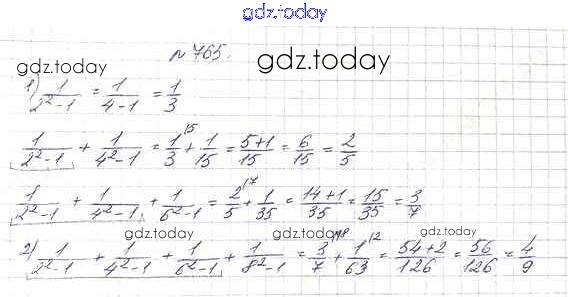 gdz.today
№765.
gdz.today gdz.today
1) 1/(2²-1) = 1/(4-1) = 1/3
1/(2²-1) + 1/(4²-1) = 1/3 ⁽⁵ + 1/15 = (5+1)/15 = 6/15 = 2/5
1/(2²-1) + 1/(4²-1) + 1/(6²-1) = 2/5 ⁽⁷ + 1/35 = (14+1)/35 = 15/35 = 3/7
gdz.today gdz.today
2) 1/(2²-1) + 1/(4²-1) + 1/(6²-1) + 1/(8²-1) = 3/7 ⁽¹⁸ + 1/63 ⁽² = (54+2)/126 = 56/126 = 4/9
gdz.today